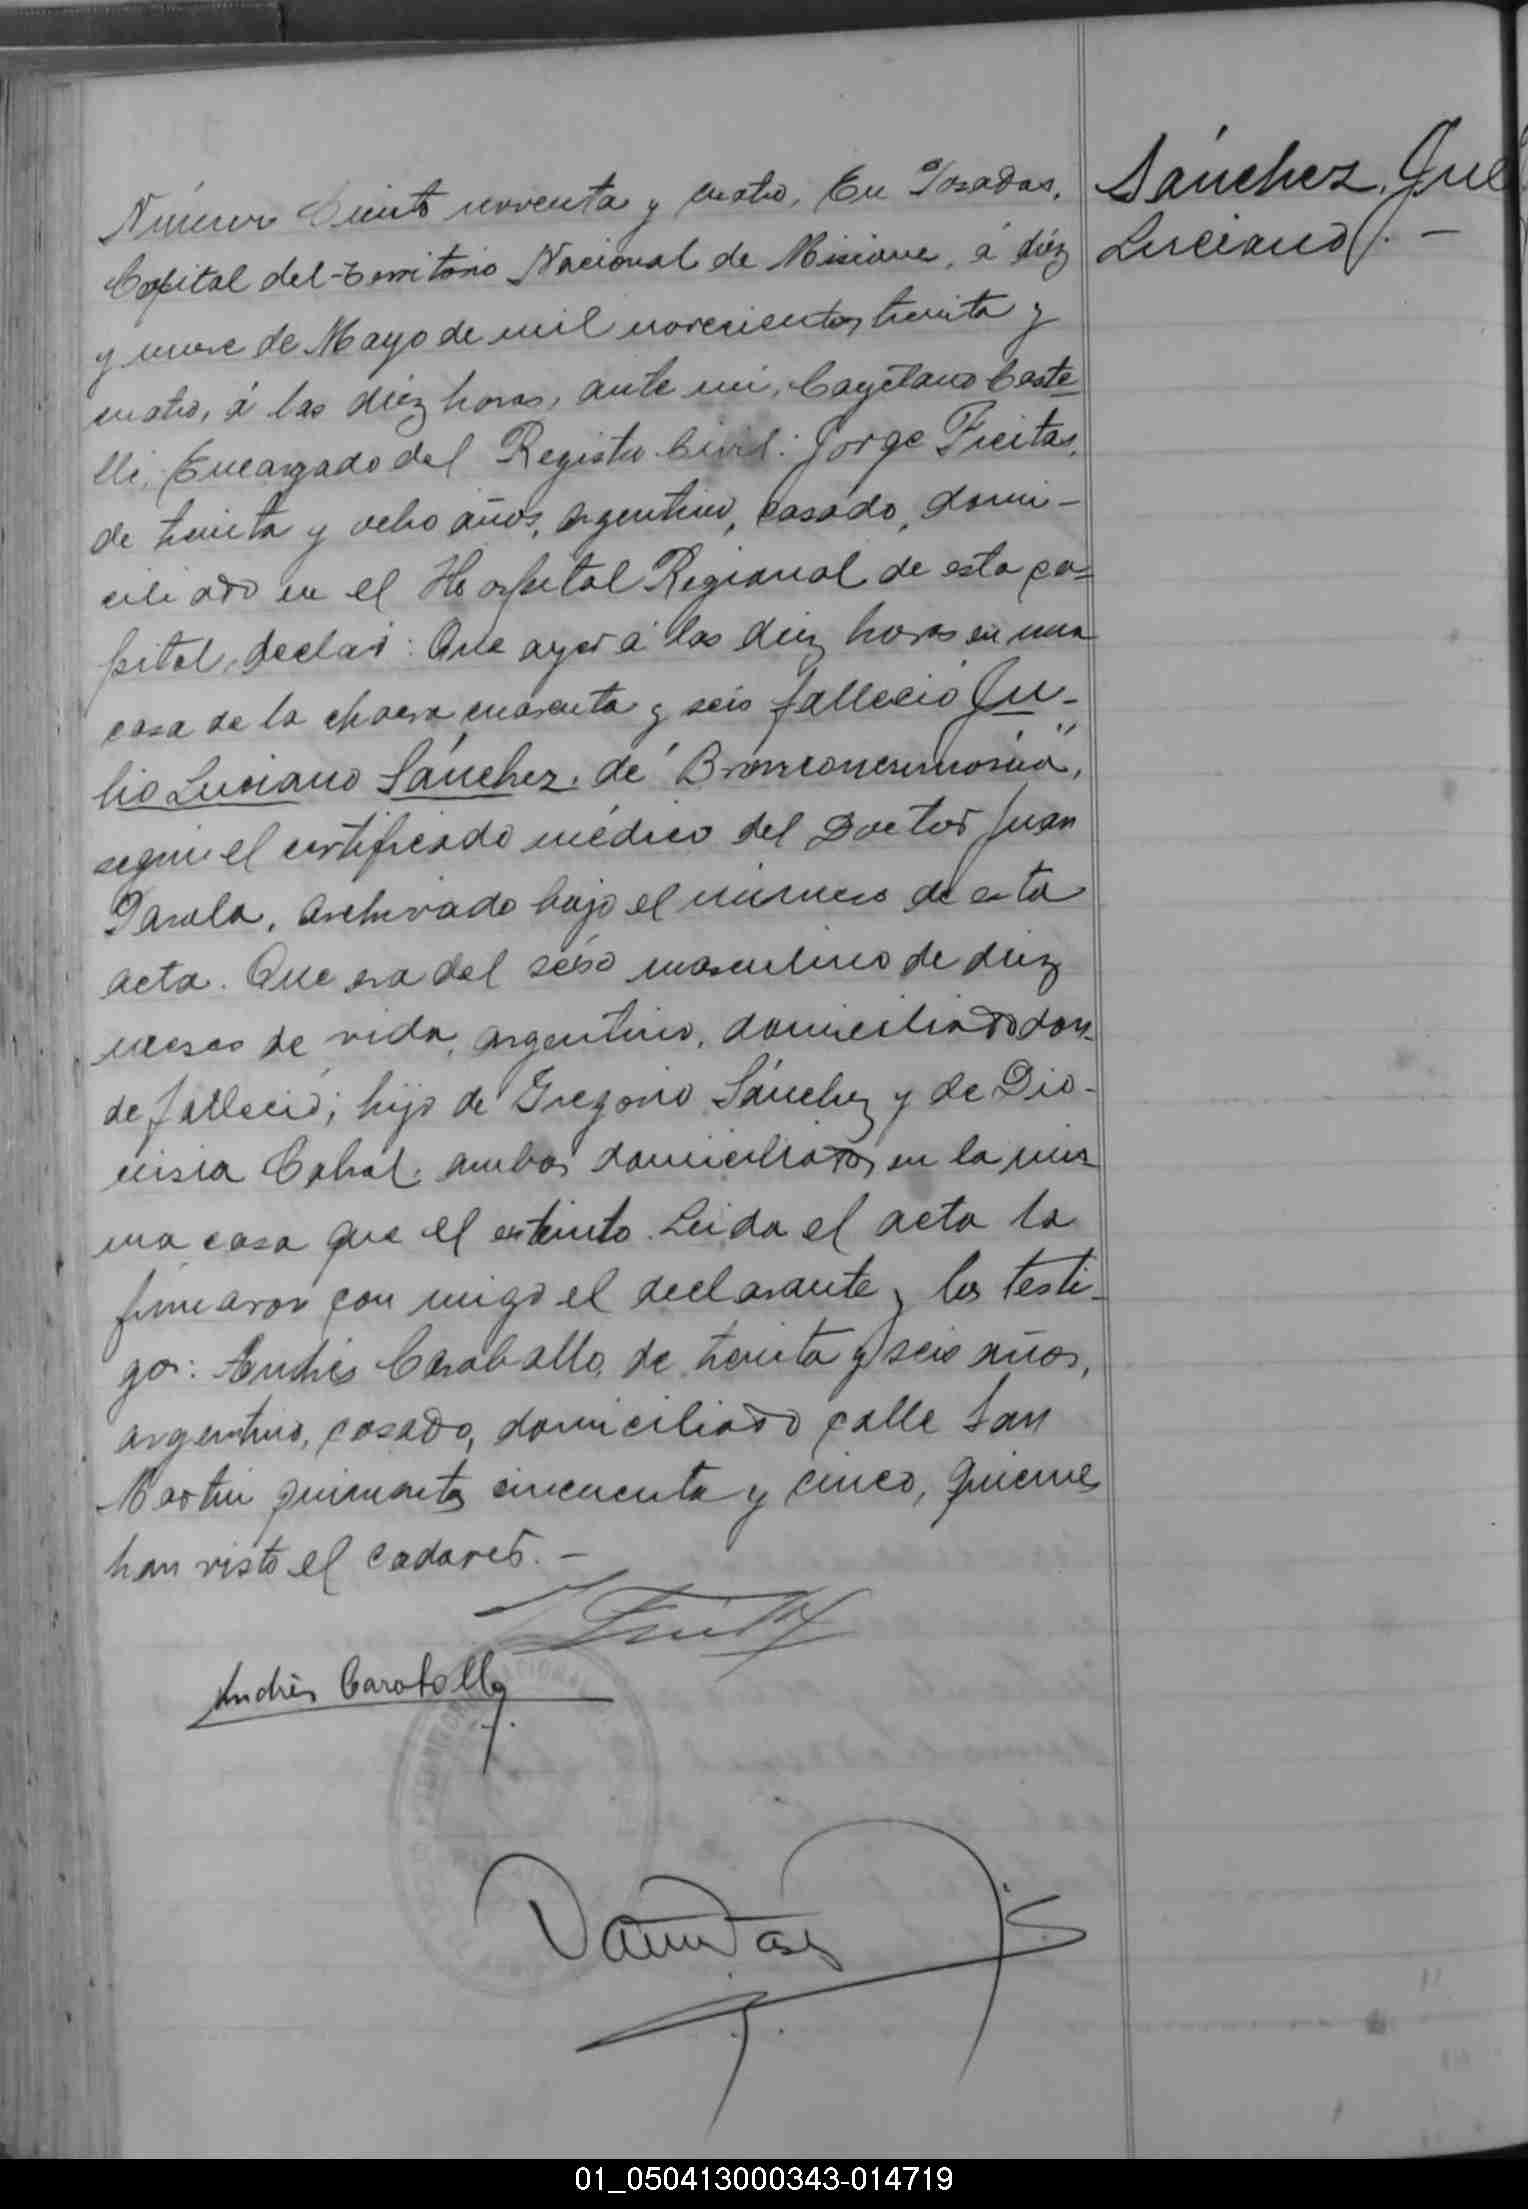 Número Ciento noventa y cuatro. En Posadas,
Capital del Territorio Nacional de Misiones, á diéz
y nueve de Mayo de mil novecientos treinta y
cuatro, á las diéz horas, ante mi, Cayetano Caste-
lli, Encargado del Registro Civil: Jorge Freitas,
de treinta y ocho años, argentino, casado, domi-
ciliado en el Hospital Regional de esta ca-
pital, declaró: Que ayer á las diez horas en una
casa de la chacra cuarenta y seis falleció Ju-
lio Luciano Sánchez, de "Bronconeumonía",
según el certificado médico del Doctor Juan
Parola, archivado bajo el número de esta
acta. Que era del sexo masculino de diez
meses de vida, argentino, domiciliado don-
de falleció; hijo de Gregorio Sánchez y de Dio-
nisia Cabral, ambos domiciliados en la mis
ma casa que el extinto. Leida el acta la
firmaron con migo el declarante y los testi-
gos: Andrés Caraballo, de treinta y seis años,
argentino, casado, domiciliado calle San
Martin quinientos cincuenta y cinco, quienes
han visto el cadaver. -
Andrés Caraballo
Sánchez, Jul
Luciano. -
01_050413000343-014719